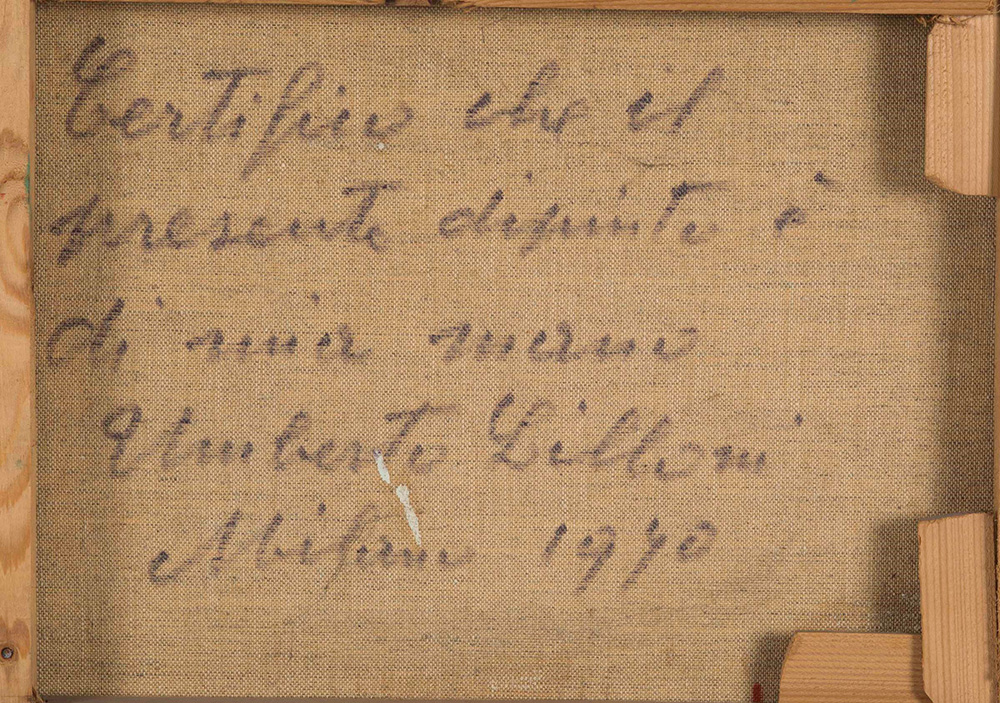 Certifico che il
presente dipinto è
di mia mano
Umberto Lilloni
Milano 1970